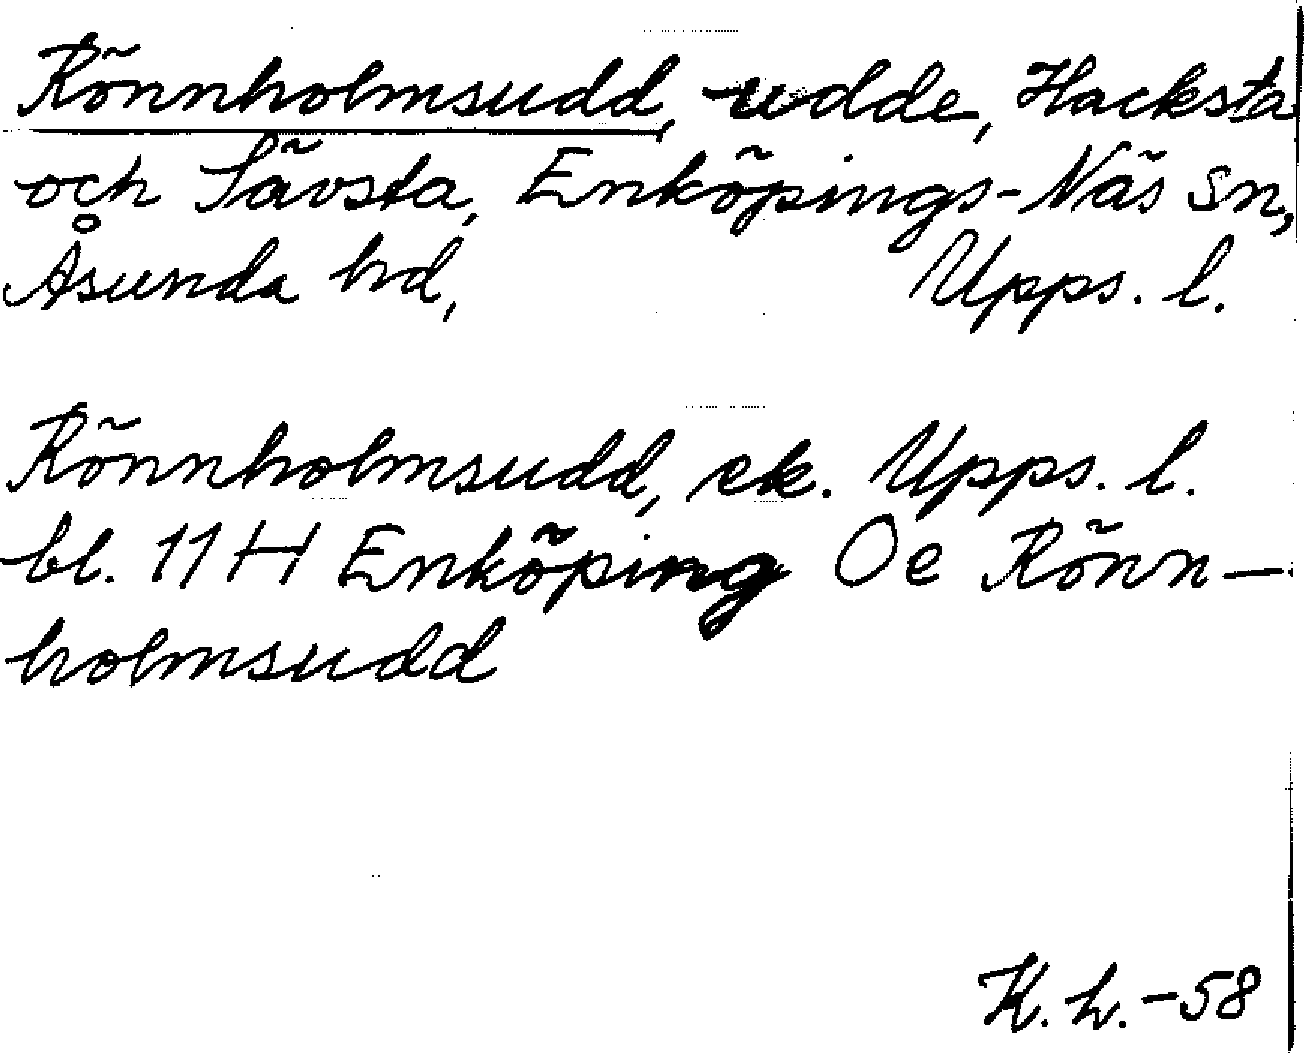 Rönnholmsudd, udde, Hacksta
och Sävsta, Enköpings-Näs sn,
Åsunda hd, Upps. l.
Rönnholmsudd, ek. Upps. l.
bl. 11 H Enköping Oe Rönn-
holmsudd
K. h. -58